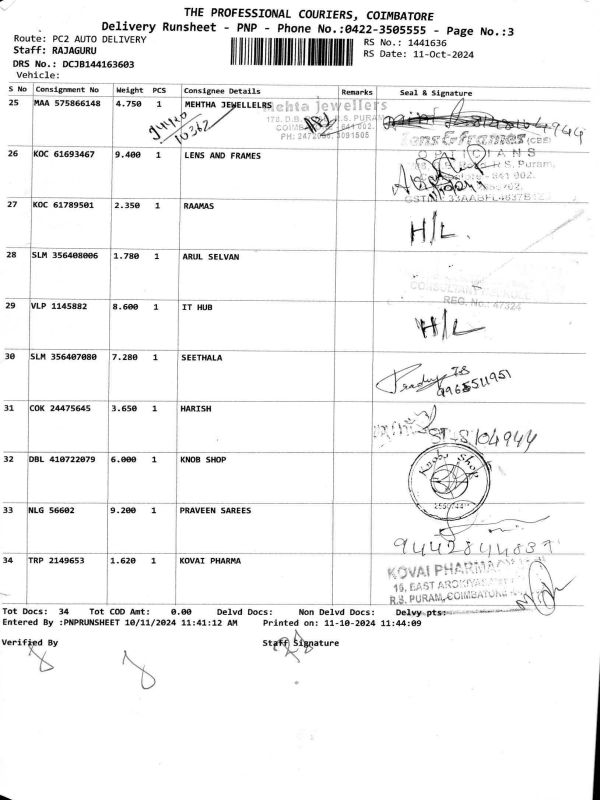 THE PROFESSIONAL COURIERS, COIMBATORE
Delivery Runsheet - PNP - Phone No.:0422-3505555 - Page No.:3
Route: PC2 AUTO DELIVERY RS No.: 1441636
Staff: RAJAGURU RS Date: 11-Oct-2024
DRS No.: DCJB144163603
Vehicle:
S No Consignment No Weight PCS Consignee Details Remarks Seal & Signature
25 MAA 575866148 4.750 1 MEHTHA JEWELLELRS
Mehta jewellers
10362
Lens & frames (CBE)
OPTICIANS
R.S. Puram,
26 KOC 61693467 9.400 1 LENS AND FRAMES
27 KOC 61789501 2.350 1 RAAMAS
H/L.
28 SLM 356408006 1.780 1 ARUL SELVAN
REG. No.: 47324
29 VLP 1145882 8.600 1 IT HUB
H/L
30 SLM 356407080 7.280 1 SEETHALA
9965511951
31 COK 24475645 3.650 1 HARISH
8104944
32 DBL 410722079 6.000 1 KNOB SHOP
Knobs Shop
33 NLG 56602 9.200 1 PRAVEEN SAREES
9442844839
34 TRP 2149653 1.620 1 KOVAI PHARMA
KOVAI PHARMA
R.S. PURAM, COIMBATORE
Tot Docs: 34 Tot COD Amt: 0.00 Delvd Docs: Non Delvd Docs: Delvy pts:
Entered By :PNPRUNSHEET 10/11/2024 11:41:12 AM Printed on: 11-10-2024 11:44:09
Verified By Staff Signature